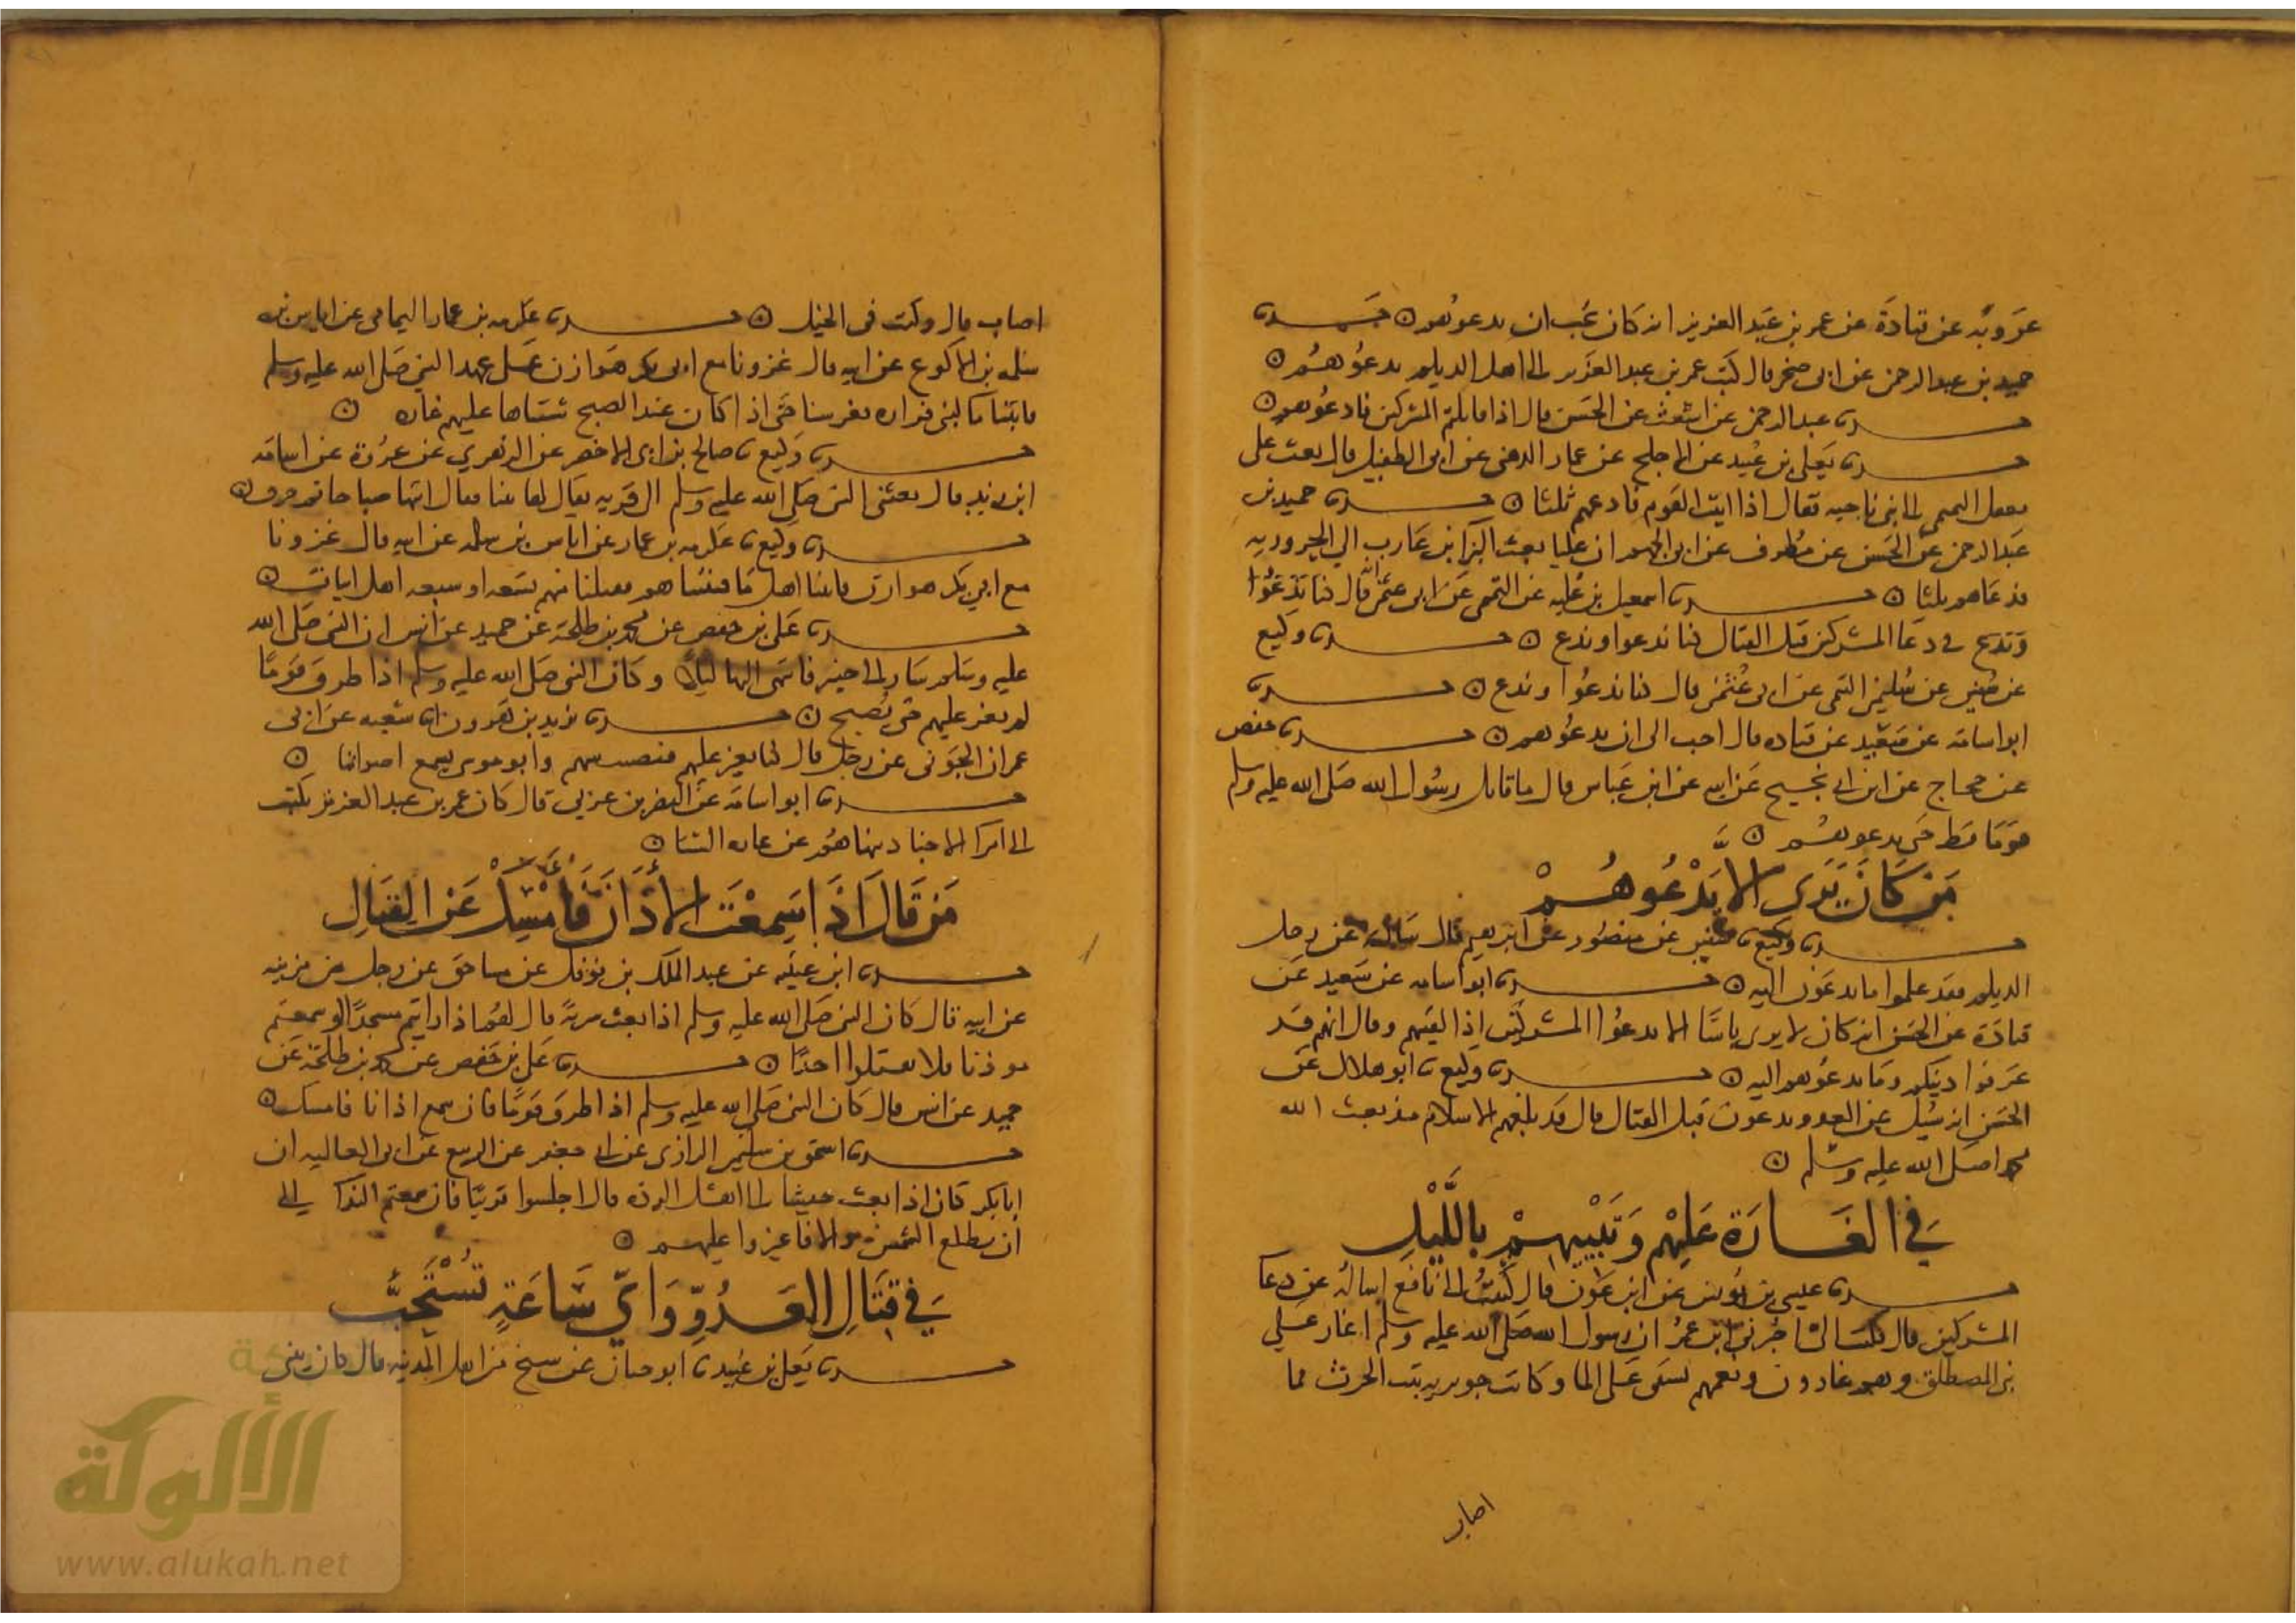 عروبه عن قتادة عن عمر بن عبد العزيز انه كان يحب ان يدعوهم حـــدثنا
حميد بن عبد الرحمن عن ابى صخر قال كتب عمر بن عبد العزيز الى اهل الديلم يدعوهم
حـــدثنا عبد الرحمن عن اشعث عن الحسن قال اذا قاتلتم المشركين فادعوهم
حـــدثنا يعلى بن عبيد عن الاجلح عن عمار الدهنى عن ابى الطفيل قال بعث على
معقل التيمى الى بنى ناجيه فقال اذا اتيت القوم فادعهم ثلثا حـــدثنا حميد بن
عبد الرحمن عن الحسن عن مطرف عن ابى الجهم ان عليا بعث البرا بن عازب الى الحروريه
فدعاهم ثلثا حـــدثنا اسمعيل بن عليه عن التيمى عن ابى عثمن قال كنا ندعوا
وندع فى دعا المشركين قبل القتال كنا ندعوا وندع حـــدثنا وكيع
عن سفين عن سليمن التيمى عن ابى عثمن قال كنا ندعوا وندع حـــدثنا
ابو اسامة عن سعيد عن قتاده قال احب الى ان يدعوهم حـــدثنا حفص
عن حجاج عن ابن ابى نجيح عن ابيه عن ابن عباس قال ما قاتل رسول الله صلى الله عليه وسلم
قوما قط حتى يدعوهم
من كان يرى الا يدعوهم
حـــدثنا وكيع نا سفين عن منصور عن ابرهيم قال سالته عن رجل
الديلم فقد علموا ما يدعون اليه حـــدثنا ابو اسامه عن سعيد عن
قتادة عن الحسن انه كان لا يرى باسا الا يدعوا المشركين اذا لقيهم وقال انهم قد
عرفوا دينكم وما يدعوهم اليه حـــدثنا وكيع نا ابو هلال عن
الحسن انه سئل عن العدو يدعون قبل القتال قال قد بلغهم الاسلام منذ بعث الله
محمدا صلى الله عليه وسلم
فى الغارة عليهم وتبييتهم بالليل
حـــدثنا عيسى بن يونس عن ابن عون قال كتبت الى نافع اساله عن دعا
المشركين قال فكتب الى اخبرنى ابن عمر ان رسول الله صلى الله عليه وسلم اغار على
بنى المصطلق وهم غارون ونعمهم تسقى على الما وكانت جويريه بنت الحرث مما
اصاب
اصاب قال وكنت فى الخيل حـــدثنا عكرمه بن عمار اليمامى عن اياس بن
سلمه بن الاكوع عن ابيه قال غزونا مع ابى بكر هوازن على عهد النبى صلى الله عليه وسلم
فاتينا ما لبنى فزاره فعرسنا حتى اذا كان عند الصبح شنناها عليهم غاره
حـــدثنا وكيع نا صالح بن ابى الاخضر عن الزهرى عن عروة عن اسامة
ابن زيد قال بعثنى النبى صلى الله عليه وسلم الى قريه يقال لها ابنا فقال ائتها صباحا ثم حرق
حـــدثنا وكيع نا عكرمه بن عمار عن اياس بن سلمه عن ابيه قال غزونا
مع ابى بكر هوازن فاتينا اهل ما فبيتناهم فقتلنا منهم تسعه او سبعه اهل ابيات
حـــدثنا على بن حفص عن محمد بن طلحة عن حميد عن انس ان النبى صلى الله
عليه وسلم سار الى خيبر فانتهى اليها ليلا وكان النبى صلى الله عليه وسلم اذا طرق قوما
لم يغر عليهم حتى يصبح حـــدثنا يزيد بن هرون انا شعبه عن ابى
عمران الجونى عن رجل قال كنا نغير عليهم فنصيب منهم وابو موسى يسمع اصواتنا
حـــدثنا ابو اسامة عن النضر بن عربى قال كان عمر بن عبد العزيز يكتب
الى امرا الاجناد ينهاهم عن غاره الشتا
من قال اذا سمعت الاذان فامسك عن القتال
حـــدثنا ابن عيينه عن عبد الملك بن نوفل عن مساحق عن رجل من مزينه
عن ابيه قال كان النبى صلى الله عليه وسلم اذا بعث سرية قال لهم اذا رايتم مسجدا او سمعتم
موذنا فلا تقتلوا احدا حـــدثنا على بن حفص عن محمد بن طلحة عن
حميد عن انس قال كان النبى صلى الله عليه وسلم اذا طرق قوما فان سمع اذانا فامسك
حـــدثنا اسحق بن سليمن الرازى عن ابى جعفر عن الربيع عن ابى العاليه ان
ابا بكر كان اذا بعث جيشا الى اهل الرده قال اجلسوا قريبا فان سمعتم الندا الى
ان تطلع الشمس والا فاغيروا عليهم
فى قتال العدو واى ساعة تستحب
حـــدثنا يعلى بن عبيد نا ابو حيان عن شيخ من اهل المدينه قال كان بينى
الألوكة
www.alukah.net